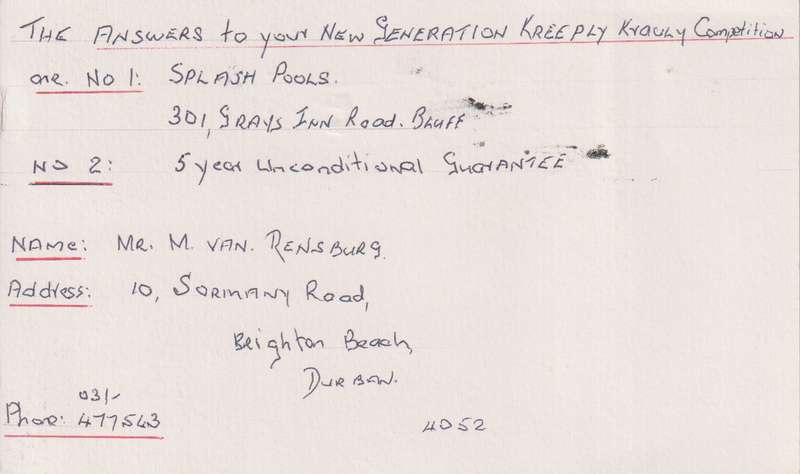 THE ANSWERS to your NEW GENERATION KREEPLY KRAULY Competition
are. No 1: SPLASH POOLS.
301, GRAYS INN Road. BLUFF
NO 2: 5 year Unconditional GUARANTEE
NAME: MR. M. VAN. RENSBURG.
Address: 10, SORMANY Road,
Brighton Beach,
DURBAN.
031/-
Phone: 477543
4052